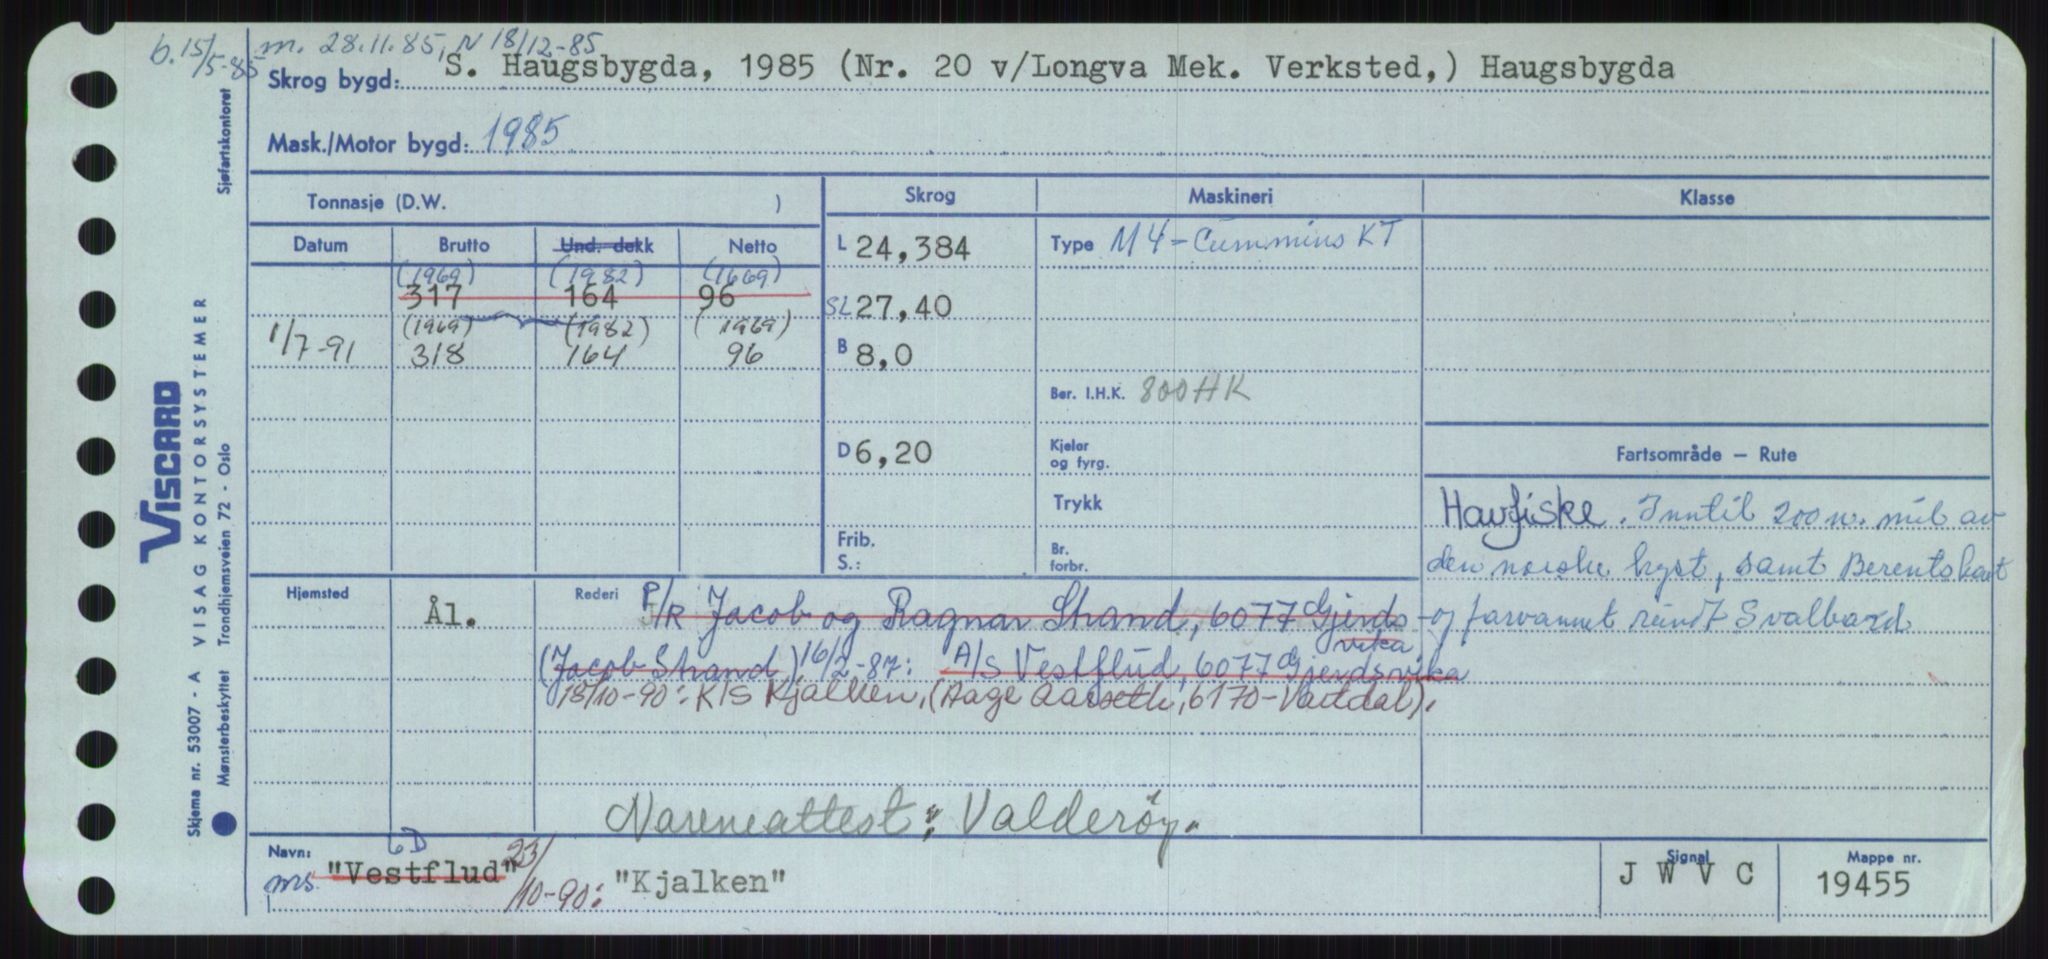 b. 15/5-85 m. 28.11.85, N 18/12-85
Skrog bygd: S. Haugsbygda, 1985 (Nr. 20 v/Longva Mek. Verksted,) Haugsbygda
Mask./Motor bygd: 1985
Tonnasje (D.W. ) Skrog Maskineri Klasse
Datum Brutto Und. dekk Netto L 24,384 Type M 4 - Cummins KT
(1969) (1982) (1669)
317 164 96 SL 27,40
(1969) (1982) (1969)
1/7-91 318 164 96 B 8,0
Ber. I.H.K. 800 HK
D 6,20 Kjeler og fyrg. Fartsområde — Rute
Trykk
Havfiske. Inntil 200 n. mil av
Frib. S.: Br. forbr.
den norske kyst, samt Berentshavet
Hjemsted Ål. Rederi P/R Jacob og Ragnar Strand, 6077 Gjerds-vika
og farvannet rundt Svalbard
(Jacob Strand) 16/2-87: A/S Vestflud, 6077 Gjerdsvika
18/10-90: K/S Kjalken, (Aage Aarseth, 6170-Vartdal).
Valderøy.
Navn: ms "Vestflud" 23/10-90: "Kjalken"
LD
Signal J W V C
Mappe nr. 19455
Sjøfartskontoret
VISCARD
VISAG KONTORSYSTEMER
Trondhjemsveien 72 - Oslo
Skjema nr. 53007 - A
Mønsterbeskyttet